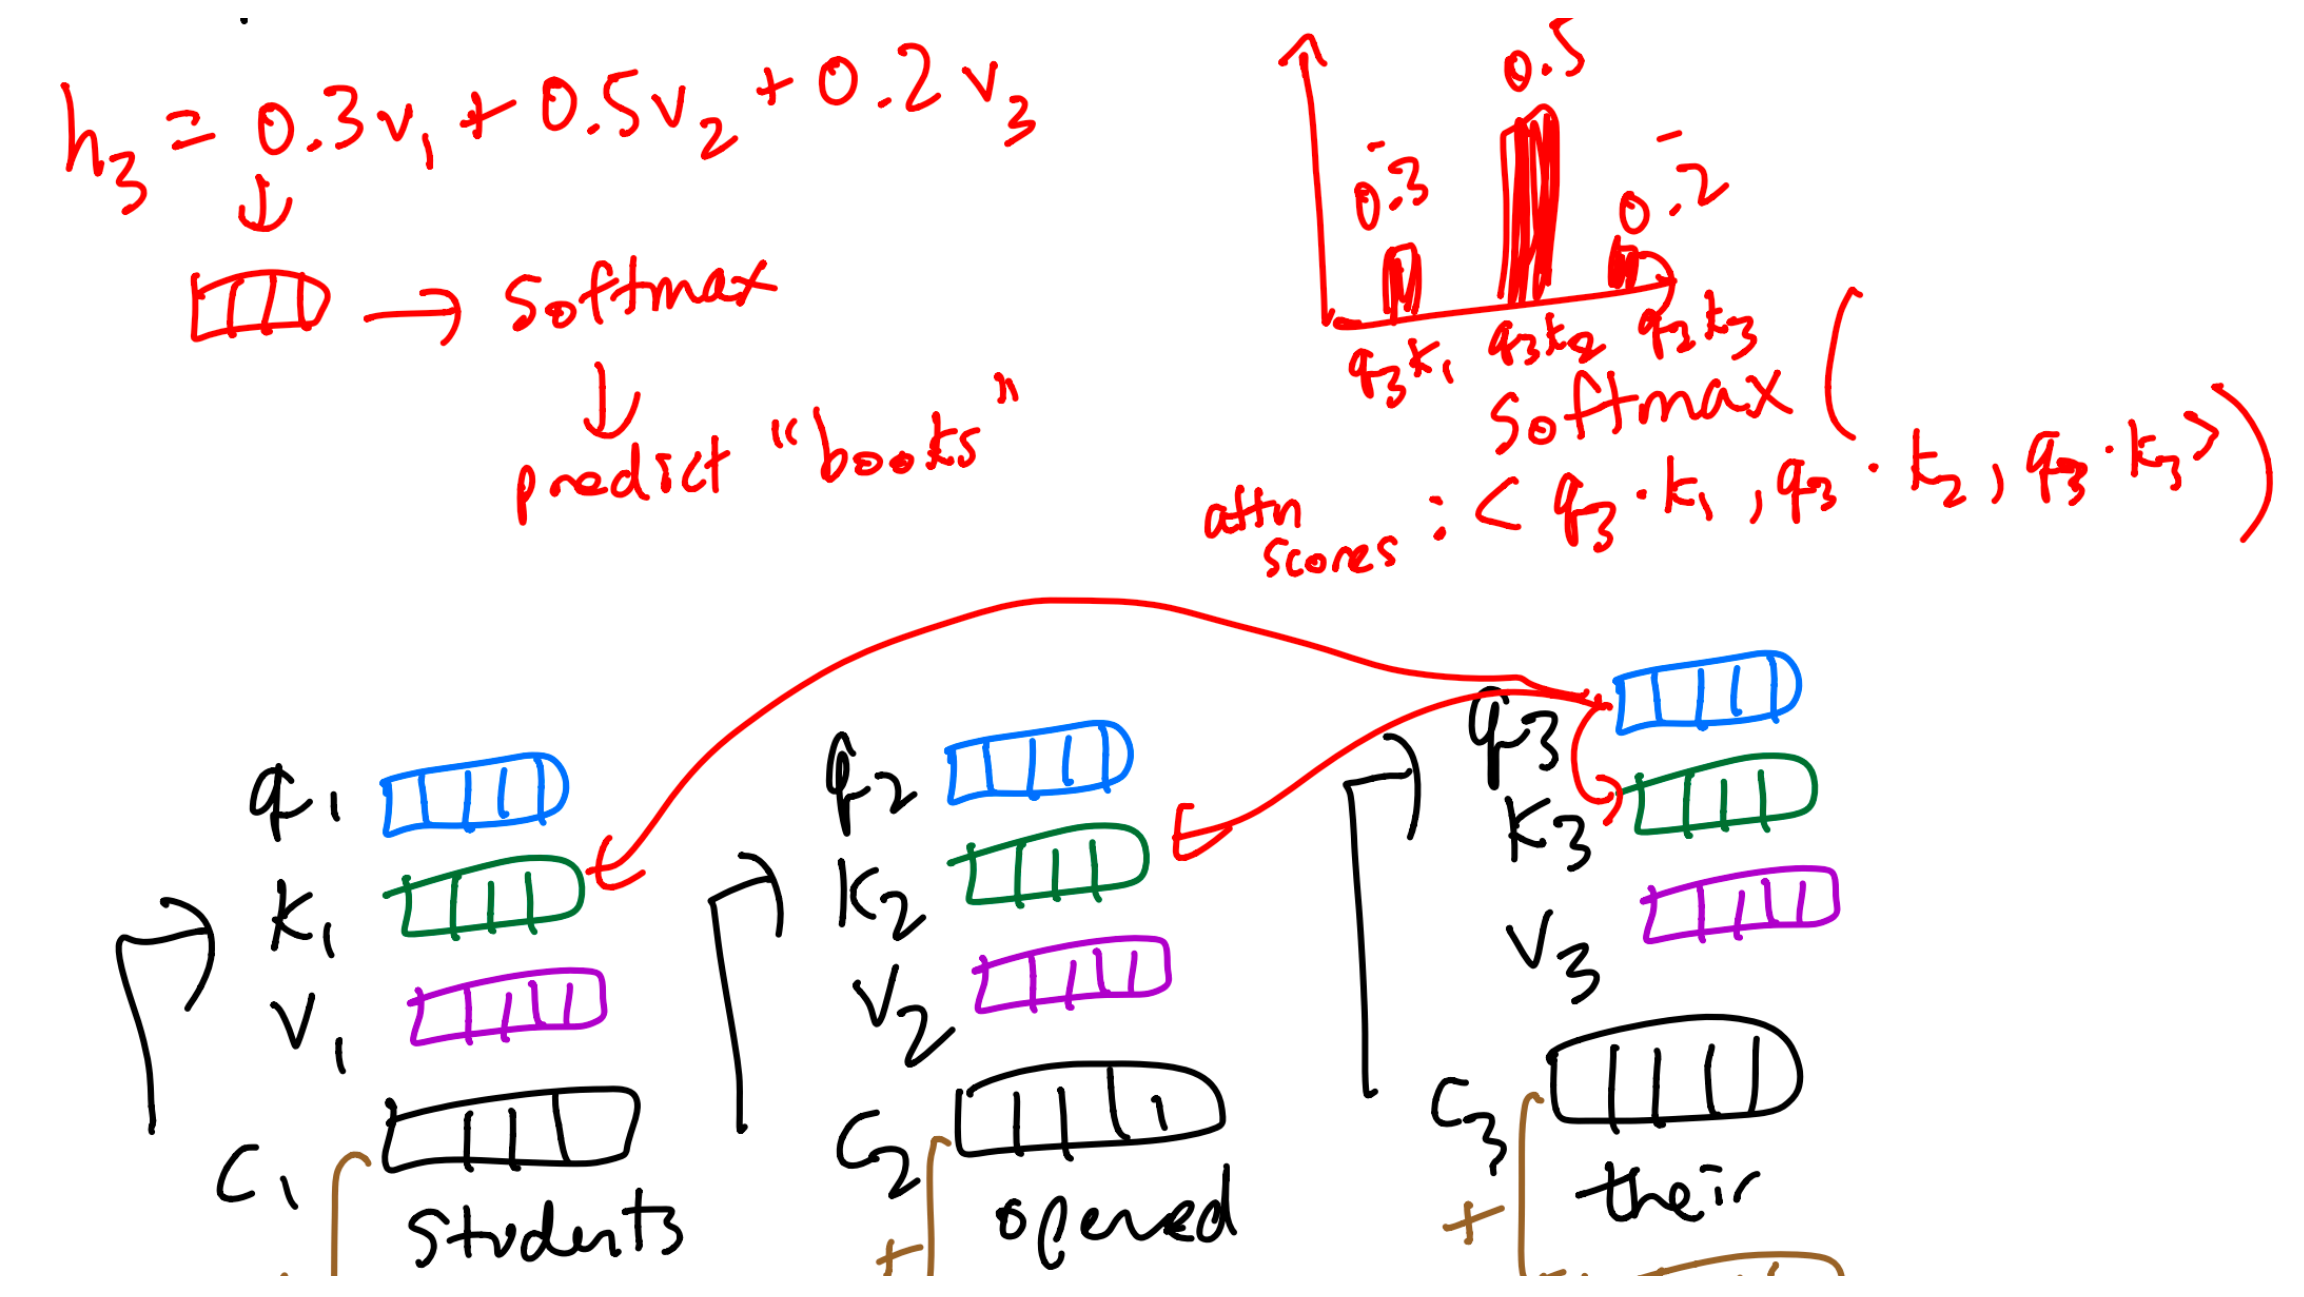 h3 = 0.3v1 + 0.5v2 + 0.2v3
→ softmax
predict "books"
0.3
0.5
0.2
q3k1 q3k2 q3k3
softmax (
attn scores : < q3·k1, q3·k2, q3·k3> )
q1
k1
v1
c1
students
q2
k2
v2
c2
opened
+
q3
k3
v3
c3
their
+